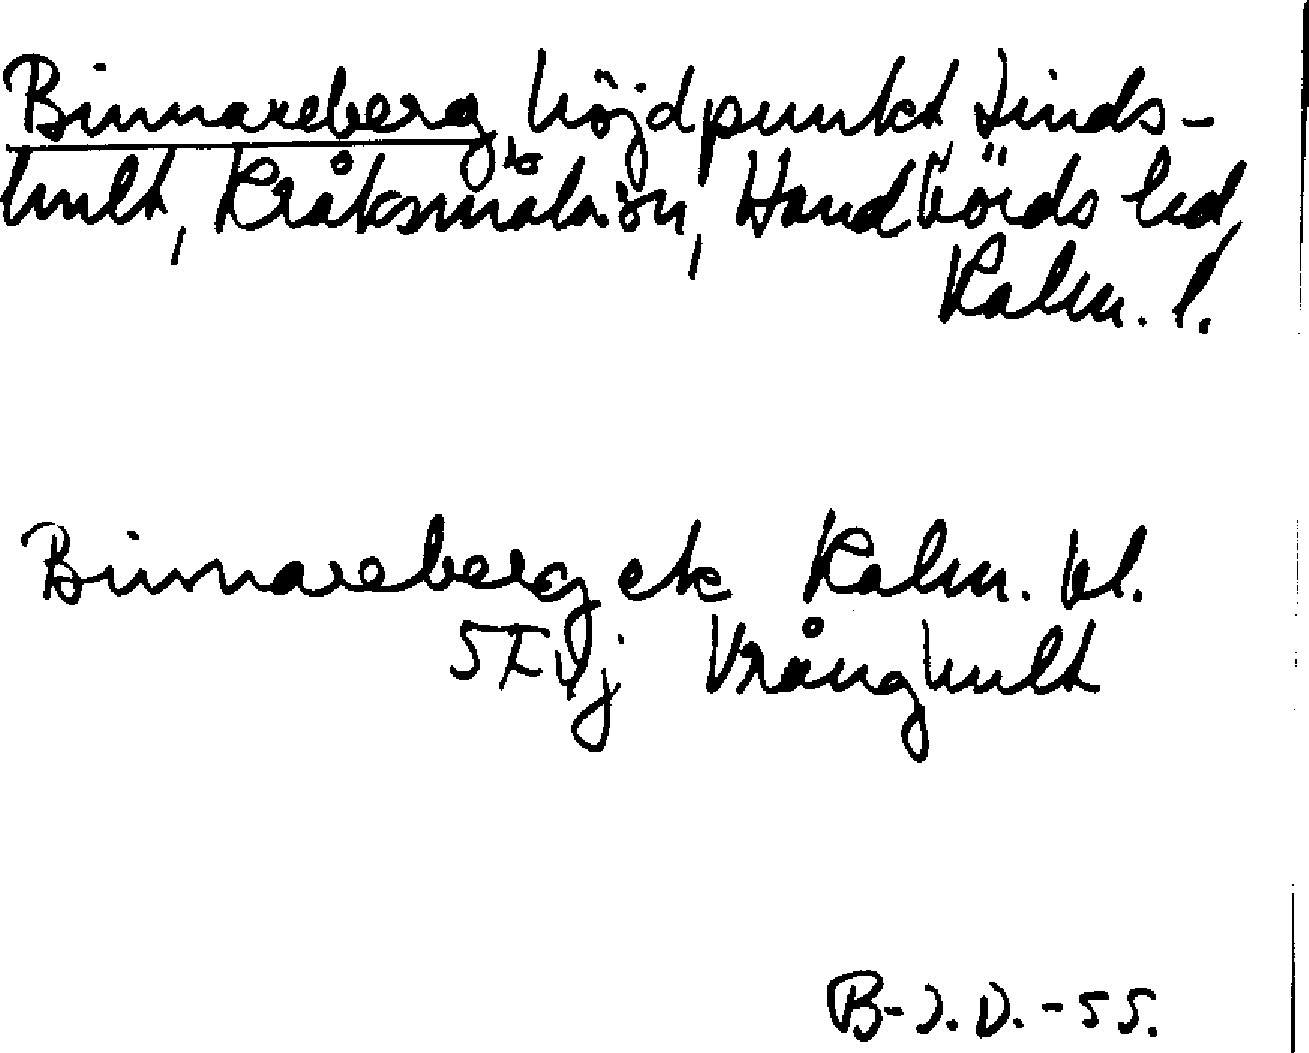 Binnareberg, höjdpunkt
hult, Kråksmåla sn, Handbörds hd,
Kalm. l.
Binnareberg ek Kalm. bl.
5F 9j Vrånghult
B-J.D.-55.